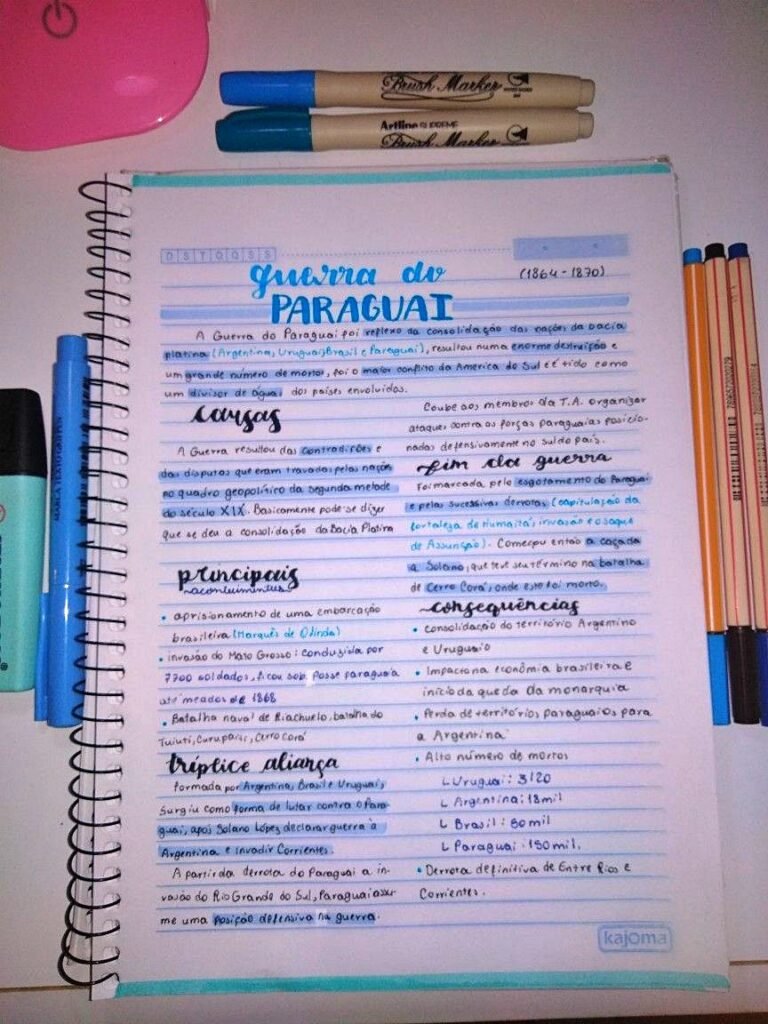 Brush Marker
Artline SUPREME
Brush Marker
D S T Q Q S S
guerra do
(1864-1870)
PARAGUAI
A Guerra do Paraguai foi reflexo da consolidação das nações da bacia
platina (Argentina, Uruguai, Brasil e Paraguai), resultou numa enorme destruição e
um grande número de mortos, foi o maior conflito da America do Sul e é tido como
um divisor de águas dos países envolvidos.
causas
A Guerra resultou das contradições e
das disputas que eram travadas pelas nações
no quadro geopolítico da segunda metade
do século XIX. Basicamente pode-se dizer
que se deu a consolidação da Bacia Platina
principais
acontecimentos
• aprisionamento de uma embarcação
brasileira (Marquês de Olinda)
• invasão do Mato Grosso: conduzida por
7700 soldados, ficou sob posse paraguaia
até meados de 1868
• Batalha naval de Riachuelo, batalha do
Tuiuti, Curupaiti, Cerro Corá
tríplice aliança
Formada por Argentina, Brasil e Uruguai,
surgiu como forma de lutar contra o Para-
guai, após Solano López declarar guerra à
Argentina e invadir Corrientes.
A partir da derrota do Paraguai a in-
vasão do Rio Grande do Sul, Paraguai assu-
me uma posição defensiva na guerra.
Coube aos membros da T.A. organizar
ataques contra as forças paraguaias posicio-
nadas defensivamente no sul do país.
fim da guerra
Foi marcada pelo esgotamento do Paraguai
e pelas sucessivas derrotas (capitulação da
fortaleza de Humaitá, invasão e o saque
de Assunção). Começou então a caçada
a Solano, que teve seu término na batalha
de Cerro Corá, onde este foi morto.
consequências
• consolidação do território Argentino
e Uruguaio
• Impacto na econômia brasileira e
início da queda da monarquia
• Perda de territórios paraguaios para
a Argentina
• Alto número de mortos
L Uruguai: 3120
L Argentina: 18 mil
L Brasil: 50 mil
L Paraguai: 150 mil.
• Derrota definitiva de Entre Rios e
Corrientes.
kajoma